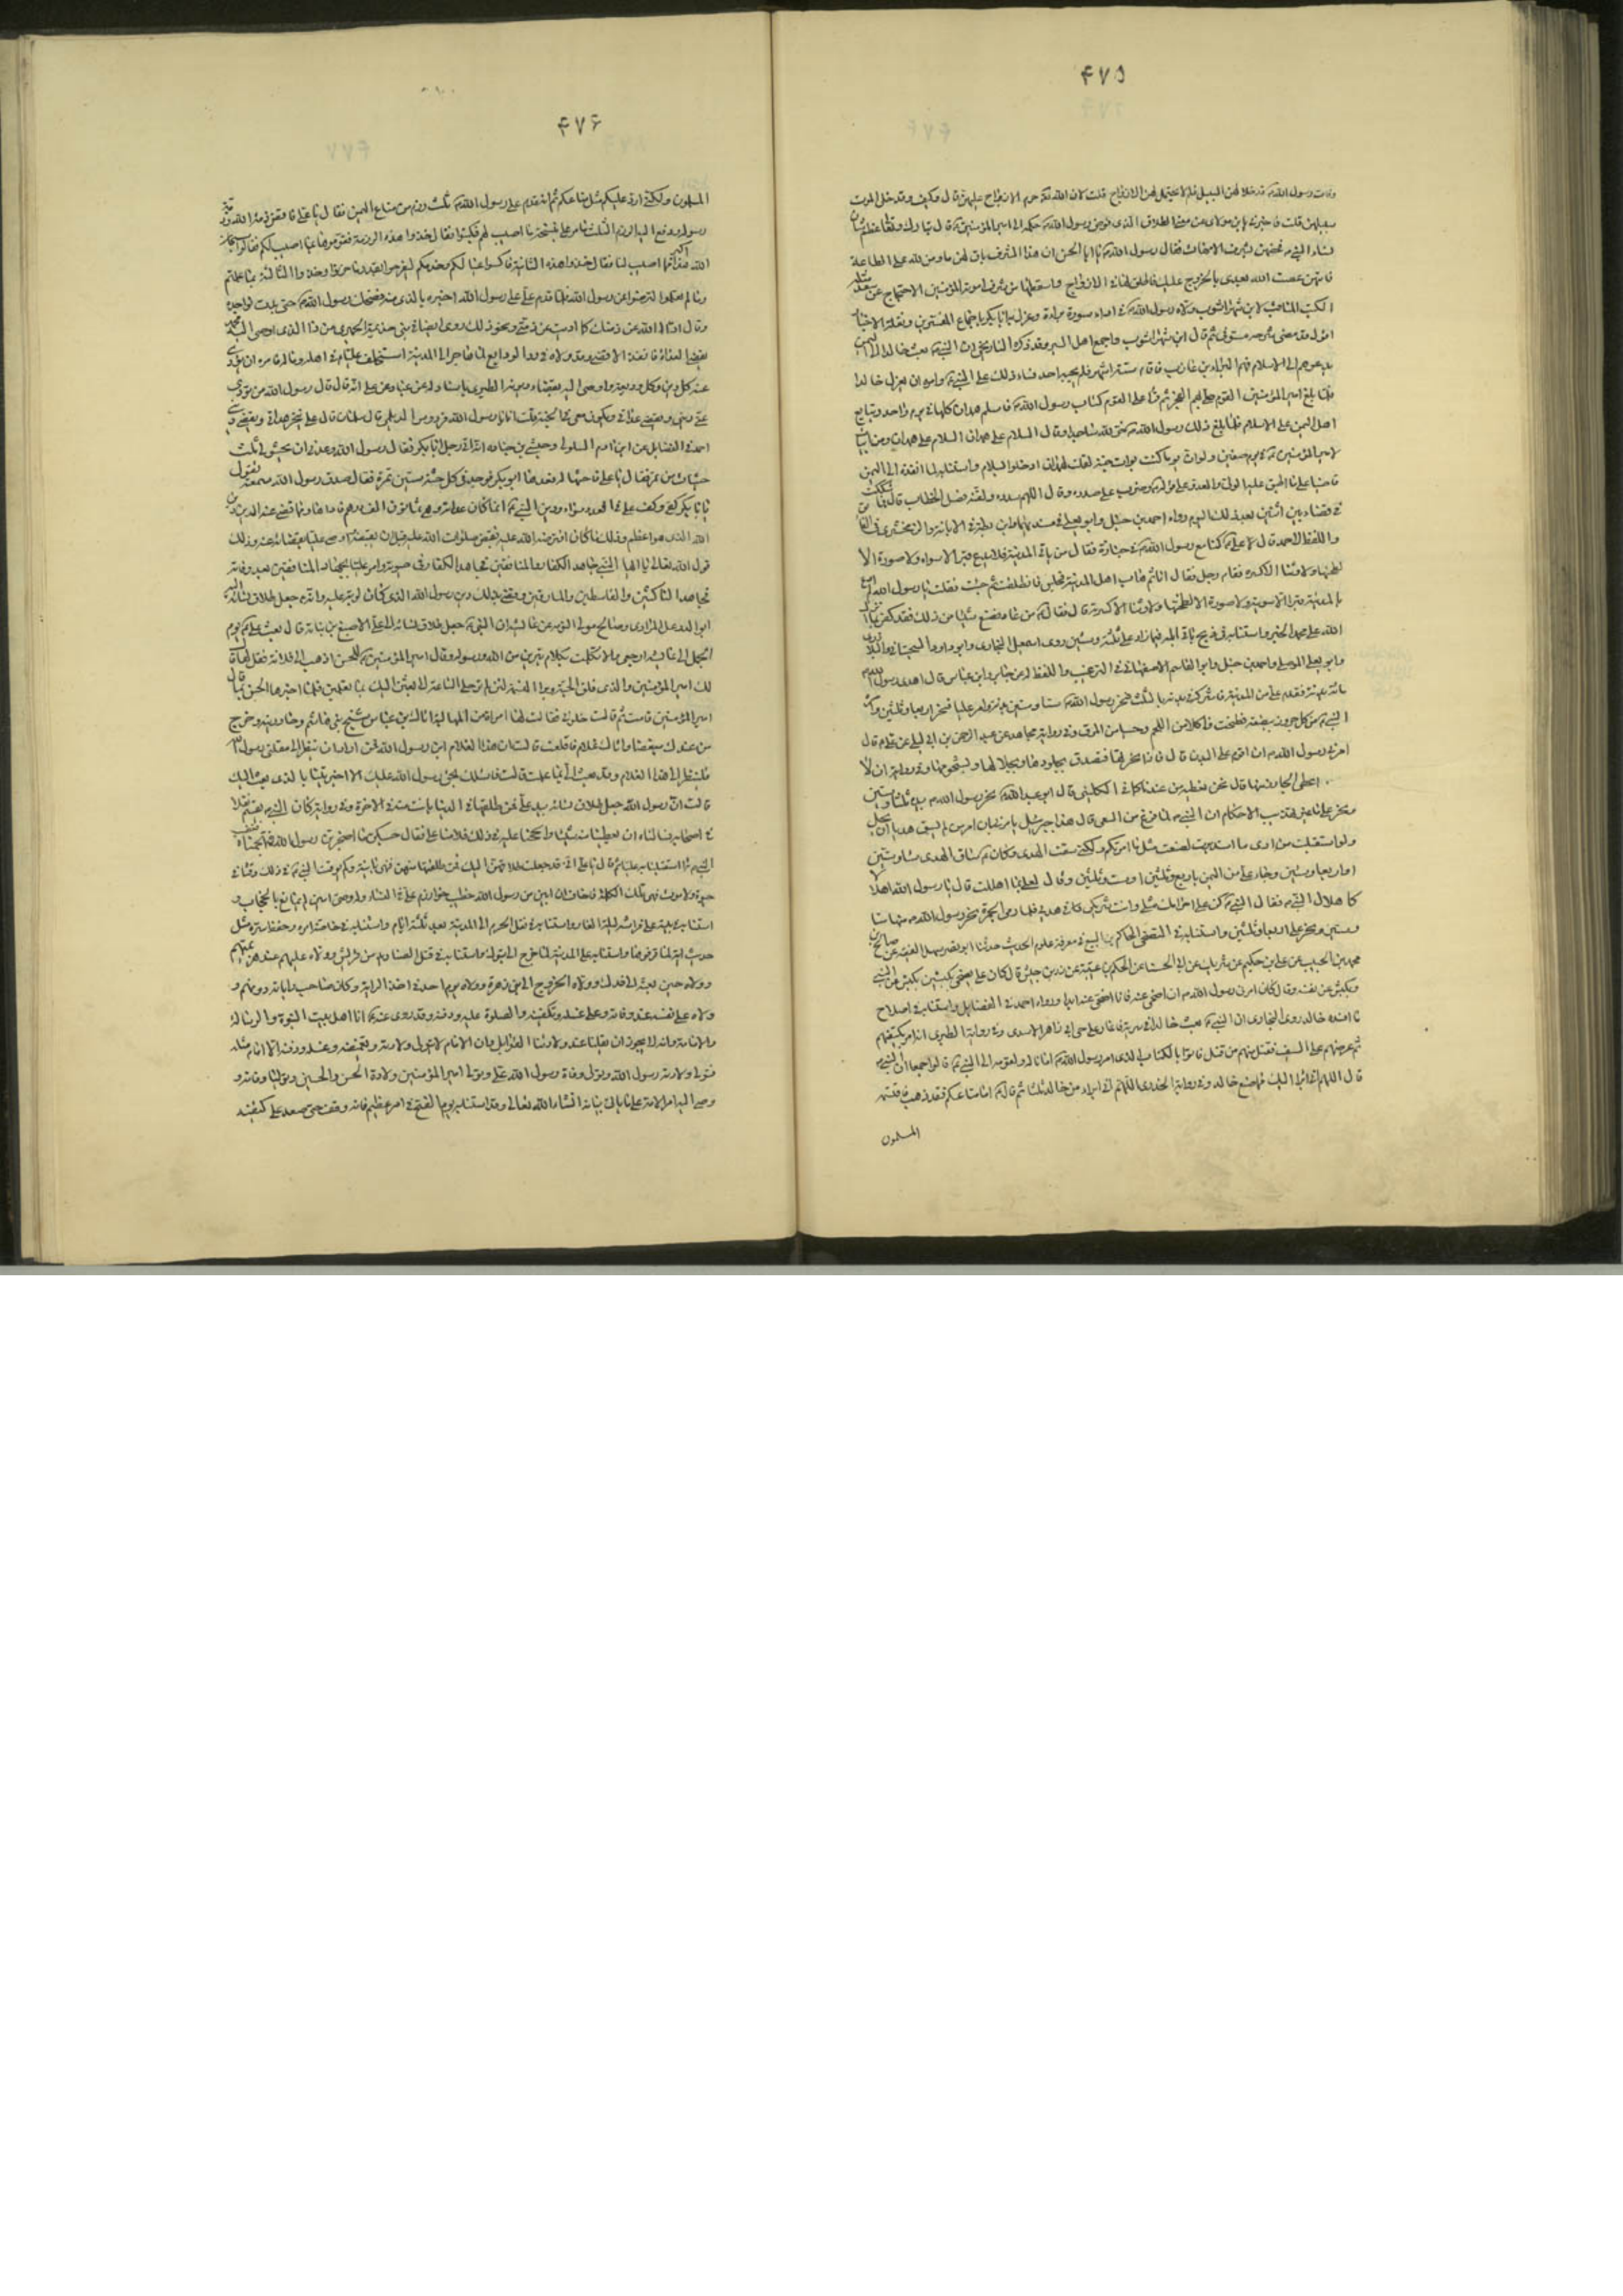 ۴۷۵
وفات رسول الله قد خلا لهن السبيل فلم لا يحتمل لهن الازواج قلت لان الله قد حرم الازواج عليهن قال وكيف وقد خلى الموت
سبيلهن قلت فاخبرني يابن مولاي عن معنى الطلاق الذي فوض رسول الله حكمه الى امير المؤمنين قال ان الله تبارك وتعالى عظم شأن
نساء النبي فخصهن بشرف الامهات فقال رسول الله يا ابا الحسن ان هذا الشرف باق لهن ما دمن لله على الطاعة
فايتهن عصت الله بعدي بالخروج عليك فاطلق لها في الازواج واسقطها من شرف امومة المؤمنين
الكتب المناقب لابن شهراشوب ولاه رسول الله في اداء سورة براءة وعزل به ابا بكر باجماع المفسرين ونقلة الاخبار
ثم قال ابن شهراشوب واجمع اهل السير وقد ذكره التاريخي ان النبي بعث خالدا الى اليمن
يدعوهم الى الاسلام فيهم البراء بن عازب فاقام ستة اشهر فلم يجبه احد فساء ذلك على النبي وامره ان يعزل خالدا
فلما بلغ امير المؤمنين القوم صلى بهم الفجر ثم قرأ على القوم كتاب رسول الله فاسلم همدان كلها في يوم واحد وتبايع
اهل اليمن على الاسلام فلما بلغ ذلك رسول الله خر لله ساجدا وقال السلام على همدان السلام على همدان ومن ابيات
لامير المؤمنين في يوم صفين ولو ان يوما كنت بواب جنة لقلت لهمدان ادخلوا بسلام واستنابه لما انفذه الى اليمن
قاضيا على ما اطبق عليه الولي والعدو على قوله وضرب على صدره وقال اللهم سدده ولقنه فصل الخطاب قال فما شككت
في قضاء بين اثنين بعد ذلك اليوم رواه احمد بن حنبل وابو يعلى في مسنديهما وابن بطة في الابانة والزمخشري في الفائق
واللفظ لاحمد قال علي كنا مع رسول الله في جنازة فقال من ياتي المدينة فلا يدع قبرا الا سواه ولا صورة الا
لطخها ولا وثنا الا كسره فقام رجل فقال انا ثم هاب اهل المدينة فجلس فانطلقت ثم جئت فقلت يا رسول الله لم ادع
بالمدينة قبرا الا سويته ولا صورة الا لطختها ولا وثنا الا كسرته قال فقال من عاد فصنع شيئا من ذلك فقد كفر بما انزل
الله على محمد الخبر واستنابه في ذبح باقي ابله فيما زاد على ثلثة وستين روى اسمعيل البخاري وابو داود السجستاني والبلاذري
وابو يعلى الموصلي واحمد بن حنبل وابو القاسم الاصفهاني في الترغيب واللفظ له عن جابر وابن عباس قال اهدى رسول الله
مائة بدنة فقدم علي من المدينة فاشركه في بدنه بالثلث فنحر رسول الله ستا وستين بدنة وامر عليا فنحر اربعا وثلثين وامر
النبي من كل جزور ببضعة فطبخت فاكلا من اللحم وحسيا من المرق وفي رواية مجاهد عن عبد الرحمن بن ابي ليلى عن علي قال
امرني رسول الله ان اقوم على البدن قال فاذا نحرتها فتصدق بجلودها وبجلالها وبشحومها وفي رواية ان لا
اعطي الجازر منها قال نحن نعطيه من عندنا كافي الكليني قال ابو عبد الله نحر رسول الله بيده ثلثا وستين
ونحر علي ما غبر تهذيب الاحكام ان النبي لما فرغ من السعي قال هذا جبرئيل يامرني بان امر من لم يسق هديا ان يحل
ولو استقبلت من امري ما استدبرت لصنعت مثل ما امرتكم ولكني سقت الهدي وكان ساق الهدي ستا وستين
او اربعا وستين وجاء علي من اليمن باربع وثلثين او ست وثلثين وقال لعلي بما اهللت قال يا رسول الله اهلالا
كاهلال النبي فقال النبي كن على احرامك مثلي وانت شريكي في هديي فلما رمى الجمرة نحر رسول الله منها ستا
وستين ونحر علي اربعا وثلثين واستنابه في التضحي الحاكم بن البيع في معرفة علوم الحديث حدثنا ابو نصر سهل الفقيه عن صالح بن
محمد بن الحبيب عن علي بن حكيم عن شريك عن ابي الحسناء عن الحكم بن عتيبة عن زر بن حبيش قال كان علي يضحي بكبشين بكبش عن النبي
وبكبش عن نفسه وقال كان امرني رسول الله ان اضحي عنه فانا اضحي عنه ابدا ورواه احمد في الفضايل واستنابه في اصلاح
ما افسده خالد روى البخاري ان النبي بعث خالدا في سرية فاغار على حي ابي زاهر الاسدي وفي رواية الطبري انه امر بكتفهم
ثم عرضهم على السيف فقتل منهم من قتل فاتوا بالكتاب الذي امر رسول الله امانا له ولقومه الى النبي قالوا جميعا ان النبي
قال اللهم اني ابرأ اليك مما صنع خالد وفي رواية الخدري اللهم اني ابرأ من خالد ثلثا ثم قال اما متاعكم فقد ذهب فاقتسمه
المسلمون
۴۷۶
المسلمون ولكنني ارد عليكم مثل متاعكم ثم انه قدم على رسول الله ثلث رزم من متاع اليمن فقال يا علي فاقض ذمة الله وذمة
رسوله ودفع اليه الرزم الثلث فامر علي بنسخة ما اصيب لهم فكتبوا فقال خذوا هذه الرزمة فقوموها بما اصيب لكم فقالوا سبحان
الله هذا اكثر مما اصيب لنا فقال خذوا هذه الثانية فاكسوا عيالكم وخدمكم ليفرحوا بقدر ما حزنوا وخذوا الثالثة بما علمتم
وما لم تعلموا لترضوا عن رسول الله فلما قدم علي على رسول الله اخبره بالذي منه فضحك رسول الله حتى بدت نواجذه
وقال ادى الله عن ذمتك كما اديت عن ذمتي ونحو ذلك روى ايضا في بني جذيمة الحميري من ذا الذي اوصى اليه محمد
يقضي العداة فانفذ الاقضاء وقد ولاه في رد الودايع لما هاجر الى المدينة استخلف عليا في اهله وماله فامره ان يؤدي
عنه كل دين وكل وديعة واوصى اليه بقضاء ديونه الطبري باسناد له عن عباد عن علي انه قال قال رسول الله من يؤدي
عني ديني ويقضي عداتي ويكون معي في الجنة قلت انا يا رسول الله فردوس الديلمي قال سلمان قال علي ينجز عداتي ويقضي ديني
احمد في الفضايل عن ابن ادم السلولي وحبشي بن جنادة انه اتى رجل ابا بكر فقال رسول الله وعدني ان يحثو لي ثلث
حثيات من تمر فقال يا علي فاحثها له فعدها ابو بكر فوجد في كل حثية ستين تمرة فقال صدق رسول الله سمعته يقول
يا ابا بكر كفي وكف علي في العدد سواء ودين النبي انما كان عداته وهي ثمانون الف درهم فاداها وما قضي عنه الدين دين
الله الذي هو اعظم وذلك ما كان افترضه الله عليه فقبض صلوات الله عليه قبل ان يقضيه واوصى عليا بقضائه عنه وذلك
قول الله تعالى يا ايها النبي جاهد الكفار والمنافقين فجاهد الكفار في حيوته وامر عليا بجهاد المنافقين بعد وفاته
فجاهد الناكثين والقاسطين والمارقين وقضى بذلك دين رسول الله الذي كان لربه عليه وانه جعل طلاق نسائه اليه
ابو الدر علي المرادي وصالح مولى التؤمة عن عايشة ان النبي جعل طلاق نسائه الى علي الاصبغ بن نباتة قال بعث علي يوم
الجمل الى عايشة ارجعي والا تكلمت بكلام تبرئين من الله ورسوله وقال امير المؤمنين للحسن اذهب الى فلانة فقل لها قال
لك امير المؤمنين والذي فلق الحبة وبرأ النسمة لئن لم ترحلي الساعة لابعثن اليك بما تعلمين فلما اخبرها الحسن بما قال
امير المؤمنين قامت ثم قالت خلوني فقالت لها امراة من المهالبة اتاك ابن عباس شيخ بني هاشم وحاورتيه وخرج
من عندك مغضبا واتاك غلام فاقلعت قالت ان هذا الغلام ابن رسول الله فمن اراد ان ينظر الى مقلتي رسول الله
فلينظر الى هذا الغلام وقد بعث الي بما علمت قالت فاسئلك بحق رسول الله عليك الا اخبرتينا بالذي بعث اليك
قالت ان رسول الله جعل طلاق نسائه بيد علي فمن طلقها في الدنيا بانت منه في الاخرة وفي رواية كان النبي يقسم نفلا
في اصحابه فسألناه ان يعطينا منه شيئا والححنا عليه في ذلك فلامنا علي فقال حسبكن ما اضجرتن رسول الله فتجهمناه فغضب
النبي مما استقبلنا به عليا ثم قال يا علي اني قد جعلت طلاقهن اليك فمن طلقتها منهن فهي بائنة ولم يوقت النبي في ذلك وقتا في
حيوة ولا موت فهي تلك الكلمة فاخاف ان ابين من رسول الله
استنابه في مبيته على فراشه ليلة الغار واستنابه في نقل الحرم الى المدينة بعد ثلثة ايام واستنابه في خاصة امره وحفظ سره مثل
حديث مارية لما قرفوها واستنابه على المدينة لما خرج الى تبوك واستنابه في قتل الصناديد من قريش وولاه عليهم عند هزيمتهم
وولاه حين بعثه الى فدك وولاه الخروج الى بني زهرة وولاه يوم احد في اخذ الراية وكان صاحب راياته دونهم و
ولاه على نفسه عند وفاته وعلى غسله وتكفينه والصلوة عليه ودفنه وقد روى عنه انا اهل بيت النبوة والرسالة
والامامة وانه لا يجوز ان يقبلنا عند ولادتنا القوابل وان الامام لا يتولى ولادته وتغميضه وغسله ودفنه الا امام مثله
فتولى ولادته رسول الله وتولى وفاة رسول الله علي وتولى امير المؤمنين ولادة الحسن والحسين وتوليا وفاته و
وصى اليه امر الامة على ما ياتي بيانه انشاء الله تعالى وقد استنابه يوم الفتح في امر عظيم فانه وقف حتى صعد على كتفيه